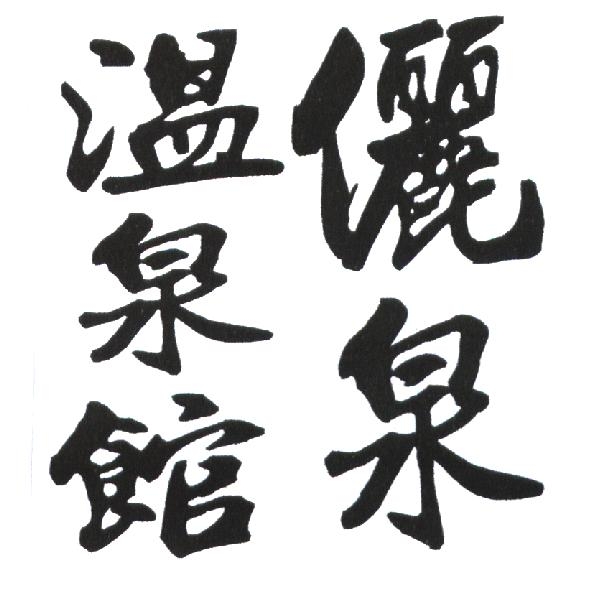 儷泉
溫泉館